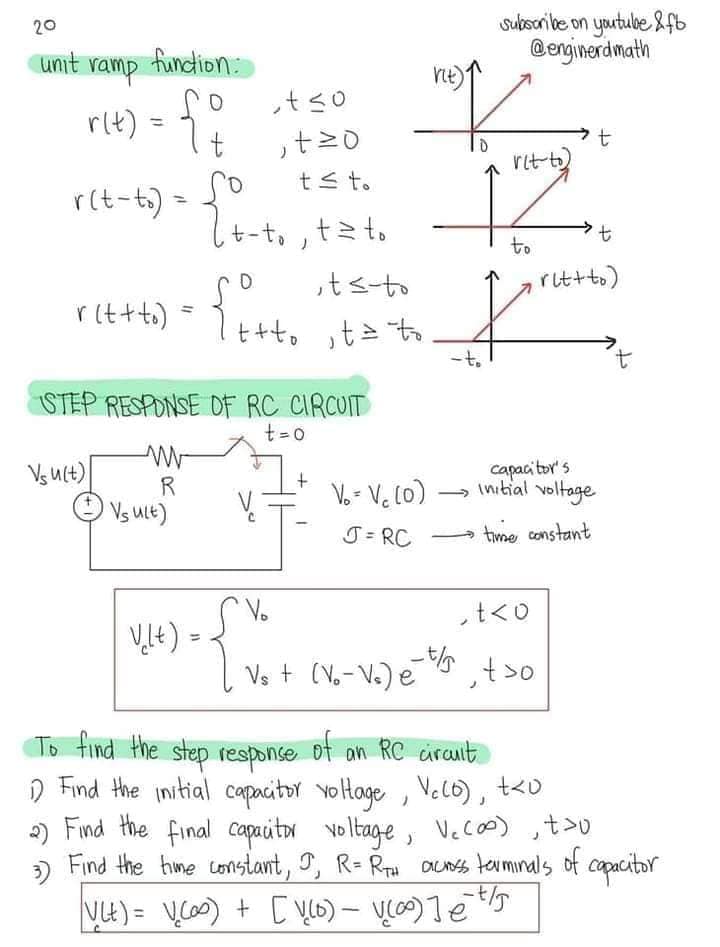 20
subscribe on youtube & fb
@enginerdmath
unit ramp function:
r(t) = { 0 , t ≤ 0
t , t ≥ 0
r(t)
0
t
r(t-t₀) = { 0 t ≤ t₀
t-t₀ , t ≥ t₀
r(t-t₀)
t₀
t
r(t+t₀) = { 0 , t ≤ -t₀
t+t₀ , t ≥ -t₀
r(t+t₀)
-t₀
t
STEP RESPONSE OF RC CIRCUIT
t=0
Vs u(t)
R
+
-
Vs u(t)
Vc
+
-
V₀ = Vc(0) → capacitor's
initial voltage
τ = RC → time constant
Vc(t) = { V₀ , t < 0
Vs + (V₀-Vs) e^-t/τ , t > 0
To find the step response of an RC circuit
1) Find the initial capacitor voltage, Vc(0), t<0
2) Find the final capacitor voltage, Vc(∞), t>0
3) Find the time constant, τ, R = R_TH across terminals of capacitor
Vc(t) = Vc(∞) + [Vc(0) - Vc(∞)] e^-t/τ